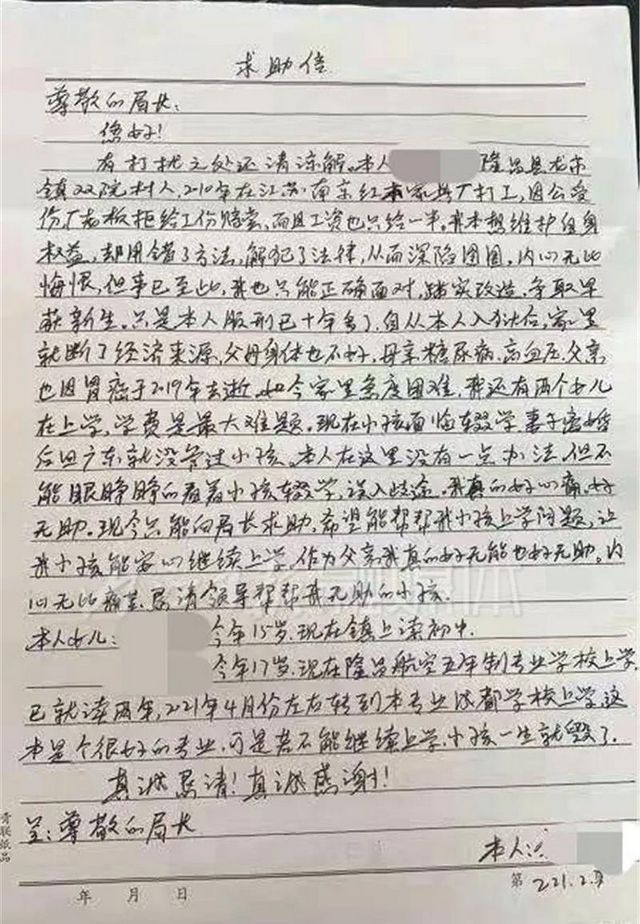 求助信
尊敬的局长：
您好！
有打扰之处还请谅解。本人 隆昌县龙市
镇双院村人，2010年在江苏南京红木家具厂打工，因公受
伤厂老板拒给工伤赔偿，而且工资也只给一半。我本想维护自身
权益，却用错了方法，触犯了法律，从而深陷囹圄。内心无比
悔恨，但事已至此，我也只能正确面对，踏实改造，争取早
获新生。只是本人服刑已十年多了，自从本人入狱后，家里
就断了经济来源，父母身体也不好，母亲糖尿病、高血压，父亲
也因胃癌于2019年去逝，如今家里急度困难，我还有两个女儿
在上学，学费是最大难题。现在小孩面临辍学，妻子离婚
后回广东就没管过小孩。本人在这里没有一点办法，但不
能眼睁睁的看着小孩辍学，误入歧途。我真的好心痛、好
无助。现今只能向局长求助，希望能帮帮我小孩上学问题，让
我小孩能安心继续上学。作为父亲我真的好无能也好无助。内
心无比痛苦，恳请领导帮帮我无助的小孩。
本人女儿： 今年15岁，现在镇上读初中。
今年17岁，现在隆昌航空五年制专业学校上学
已就读两年，2021年4月份左右转到本专业成都学校上学，这
本是个很好的专业，可是若不能继续上学，小孩一生就毁了。
真诚恳请！真诚感谢！
呈：尊敬的局长
本人：
青联纸品
年 月 日 第